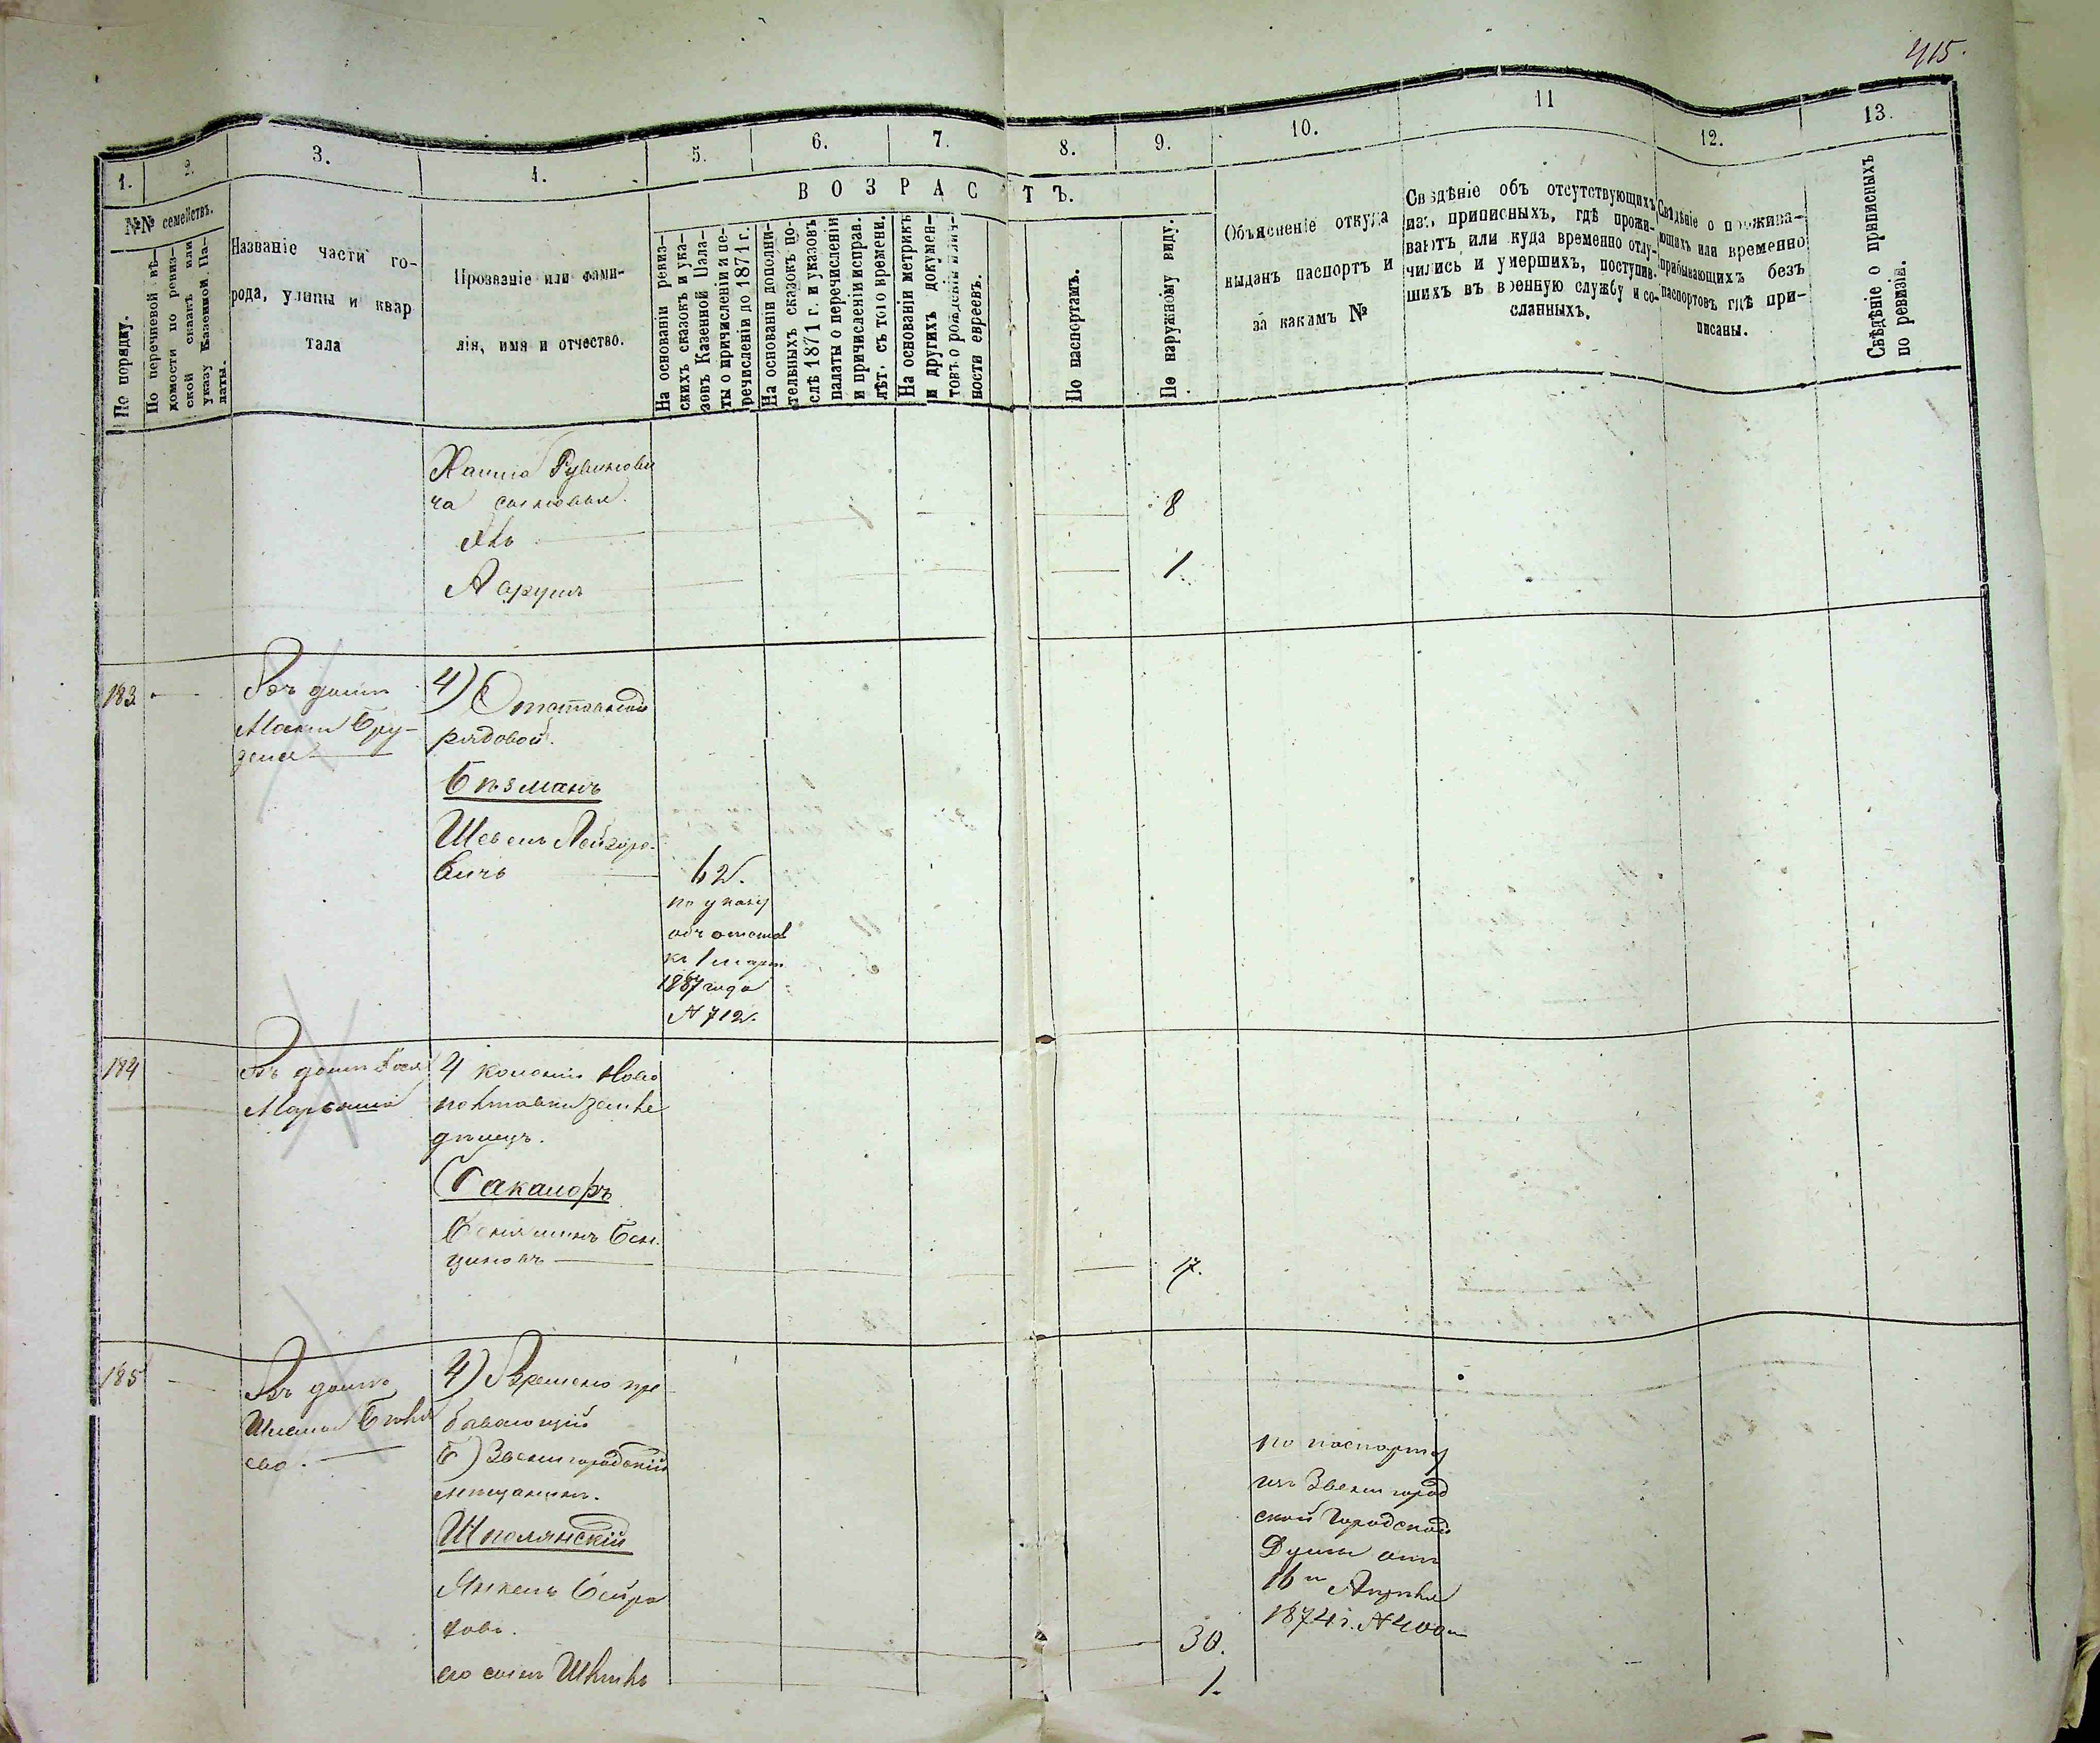 415.
1.
2.
3.
4.
5.
6.
7.
8.
9.
10.
11
12.
13.
№№ семействъ.
По порядку.
По перечневой вѣ-
домости по ревиз-
ской сказкѣ или
указу Казенной Па-
латы.
Названіе части го-
рода, улицы и квар
тала
Прозваніе или фами-
лія, имя и отчество.
ВОЗРАСТЪ.
На основаніи ревиз-
скихъ сказокъ и ука-
зовъ Казенной Пала-
ты о причисленіи и пе-
речисленіи до 1871 г.
На основаніи дополни-
тельныхъ сказокъ по-
слѣ 1871 г. и указовъ
палаты о перечисленіи
и причисленіи исправ.
лѣт. съ того времени.
На основаніи метрикъ
и другихъ докумен-
товъ о рожденіи и лич-
ности евреевъ.
По паспортамъ.
По наружному виду.
Объясненіе откуда
выданъ паспортъ и
за какимъ №
Свѣдѣніе объ отсутствующихъ
изъ приписныхъ, гдѣ прожи-
ваютъ или куда временно отлу-
чились и умершихъ, поступив.
шихъ въ военную службу и со-
сланныхъ.
Свѣдѣніе о прожива-
ющихъ или временно
прибывающихъ безъ
паспортовъ гдѣ при-
писаны.
Свѣдѣніе о приписныхъ
по ревизіи.
Хаима Рувинови
ча сыновья.
8
Аарунъ
1
183
Въ домѣ
4) Отставной
рядовой.
Бизманъ
Шевель Лейзоро-
вичъ
62.
по указу
объ отстав
къ 1 март
1867 года
№ 712.
184
Въ домѣ
4 колоніи Ново
полтавки земле
дѣлецъ.
Бакалоръ
Беніаминъ Бен.
ціоновъ
17.
185
Въ домѣ
4) Временно пре
бывающій
Б) Звенигородскій
мѣщанинъ.
Шполянскій
Янкель Бейра
ховъ.
30.
по паспорту
изъ Звенигород
ской Городской
Думы отъ
16го Апрѣля
1874 г. № 400
его сынъ
1.